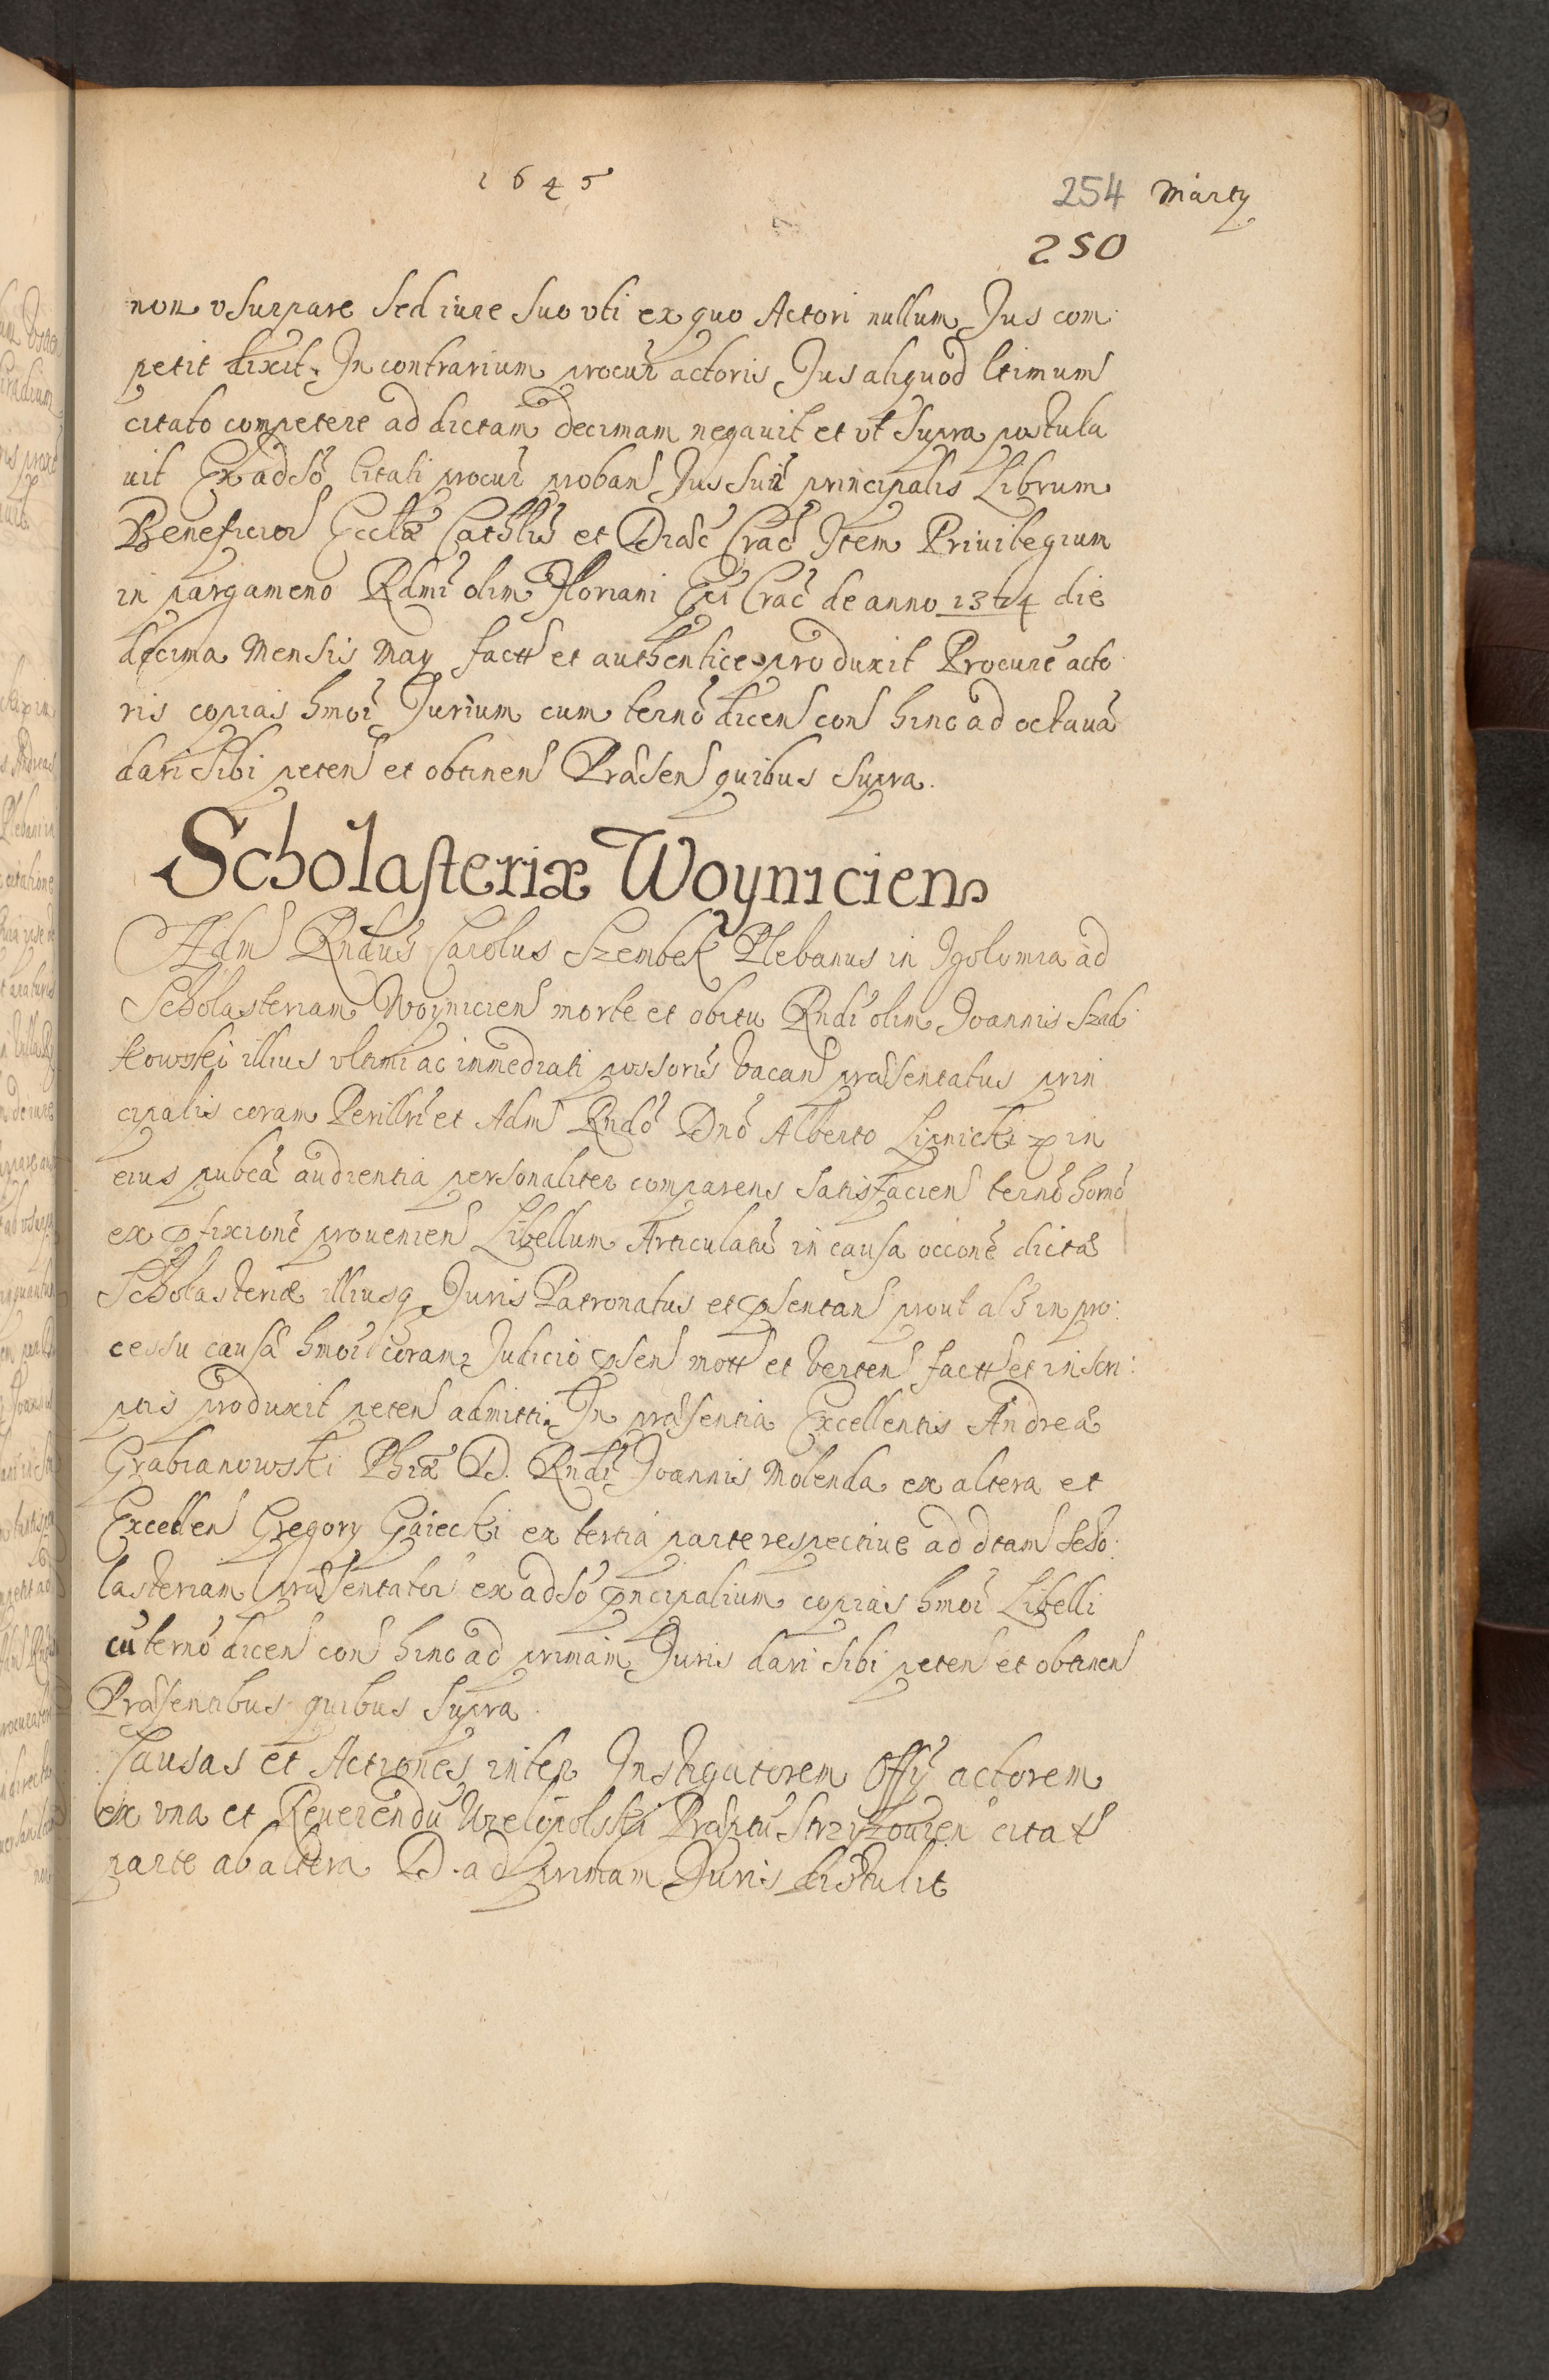 1645
254 Marty
250
non vsurpare sed iure suo vti ex quo Actori nullum Jus com:
petit dixit. In contrarium procur actoris Jus aliquod ltimum
citato competere ad dictam decimam negauit et vt supra postula
uit Ex adso Citati procur probans Jus suu principalis Librum
Beneficior Ecclæ Cathlis et Diæc Crac Item Privilegium
in pargameno Rdmi olim Floriani Epi Crac de anno die
decima Mensis May factt et authentice produxit Procure acto
ris copias hmoi Jurium cum termo dicen con hinc ad octaua
dari sibi peten et obtinen Præsen quibus supra.
Scholasteriæ Woynicien
Adm Rndus Carolus Szembek Plebanus in Igolomia ad
Scholasteriam Woynicien morte et obitu Rndi olim Joannis Szad
kowski illius vltimi ac immediati possoris vacan præsentatus prin
cipalis coram Perillri et Adm Rndo Dno Alberto Lipnicki in
eius publca audientia personaliter comparens satisfacien termo homo
ex pfixione prouenien Libellum Articulatu in causa occone dictæ
Scholasteriæ illiusq Juris Patronatus et psentan prout als in pro:
cessu causæ hmoi coram Judicio psen mott et verten factt et in scri:
ptis produxit peten admitti. In præsentia Excellentis Andreæ
Grabianowski Phiæ D. Rndi Joannis Molenda ex altera et
Excellen Gregory Gaiecki ex tertia parte respectiue ad dtam Scho:
lasteriam præsentator ex adso pncipalium copias hmoi Libelli
cu termo dicen con hinc ad primam Juris dari sibi peten et obtinen
Præsentibus quibus supra.
Causas et Actiones inter Instigatorem Offy actorem
ex vna et Reuerendu Wielopolski Præptu Strzyzouien citat
parte ab altera D. ad primam Juris distulit